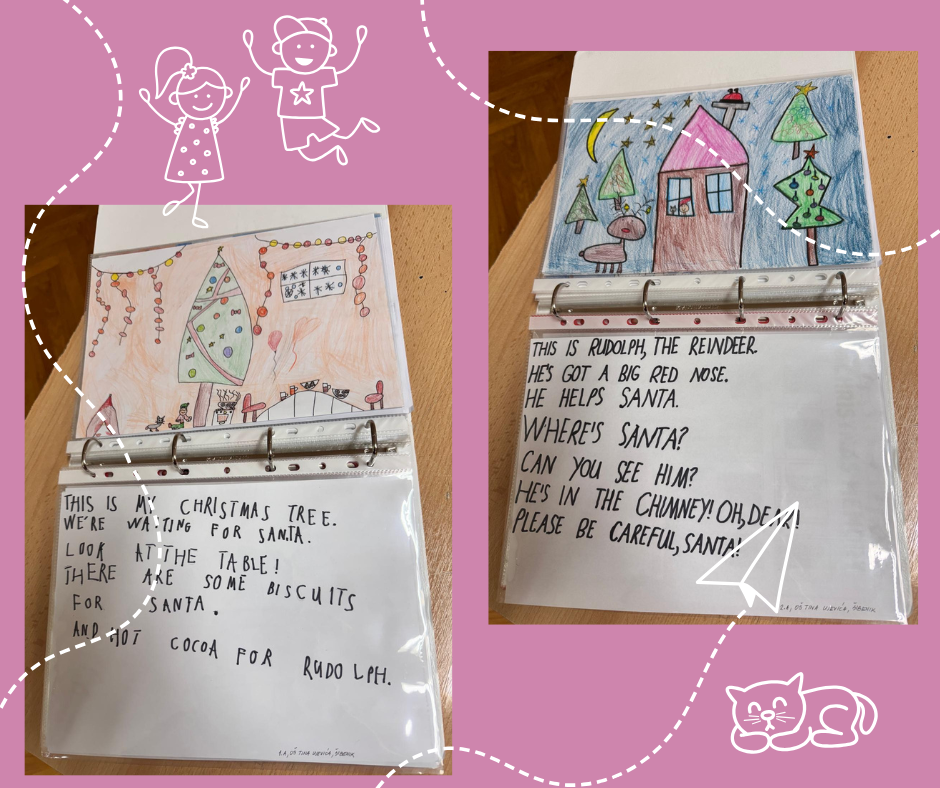 THIS IS MY CHRISTMAS TREE.
WE'RE WAITING FOR SANTA.
LOOK AT THE TABLE!
THERE ARE SOME BISCUITS
FOR SANTA.
AND HOT COCOA FOR RUDOLPH.
2.A, OŠ TINA UJEVIĆA, ŠIBENIK
THIS IS RUDOLPH, THE REINDEER.
HE'S GOT A BIG RED NOSE.
HE HELPS SANTA.
WHERE'S SANTA?
CAN YOU SEE HIM?
HE'S IN THE CHIMNEY! OH, DEAR!
PLEASE BE CAREFUL, SANTA!
2.A, OŠ TINA UJEVIĆA, ŠIBENIK